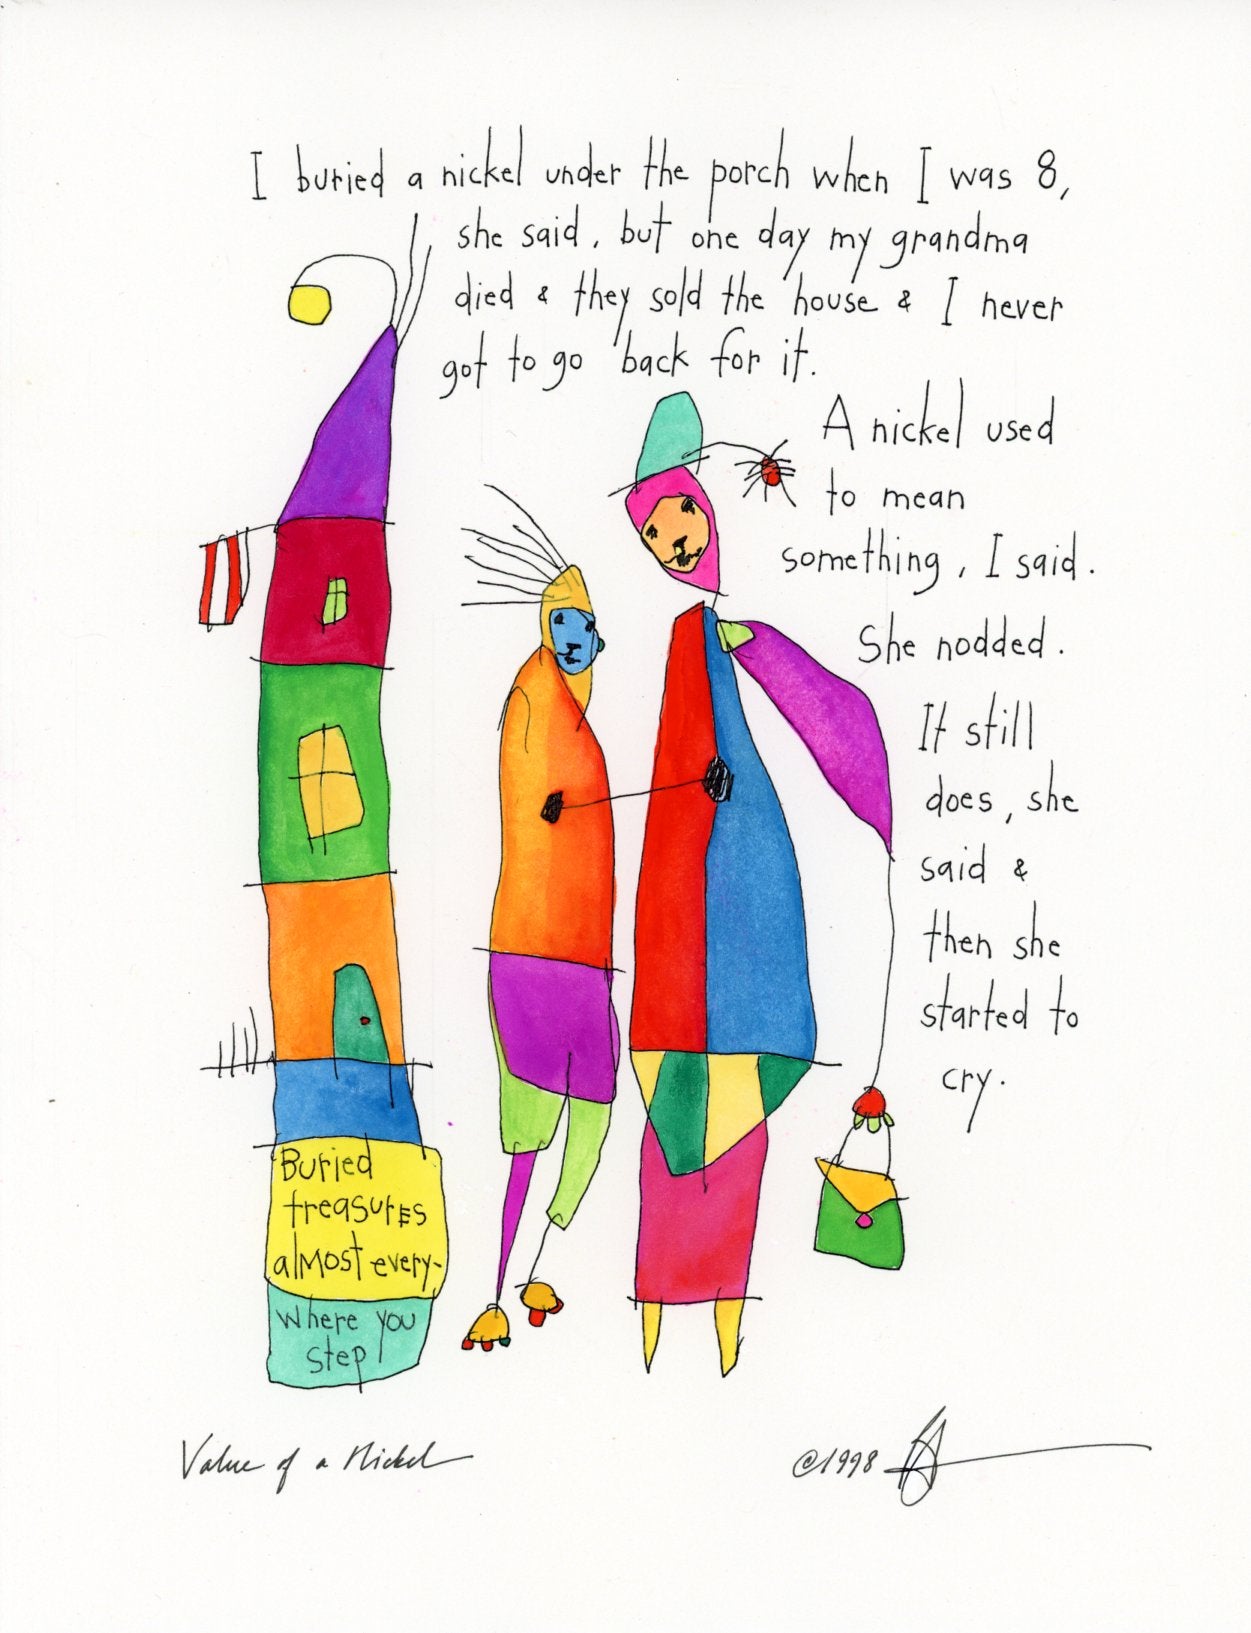 I buried a nickel under the porch when I was 8,
she said, but one day my grandma
died & they sold the house & I never
got to go back for it.
A nickel used
to mean
something, I said.
She nodded.
It still
does, she
said &
then she
started to
cry.
Buried
treasures
almost every-
where you
step
Value of a Nickel
©1998